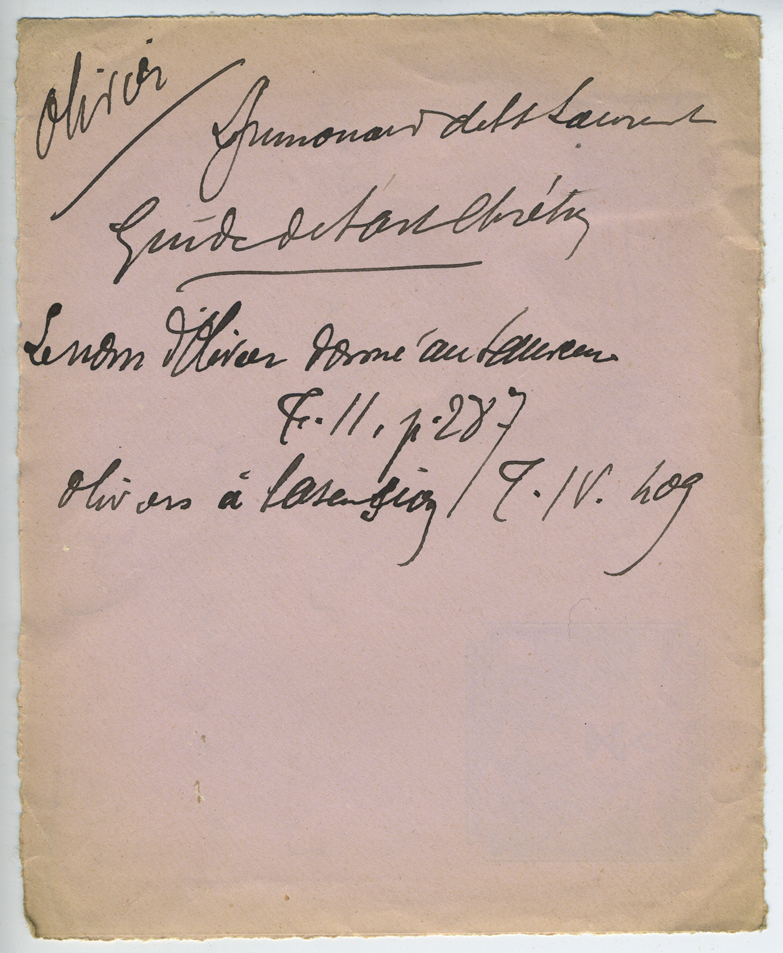 Olivier
Grimouard de St Laurent
Guide de l'art Chrétien
Le nom d'Olivier donné au Sauveur
T. II. p. 287
Oliviers à l'ascension / T. IV. 409